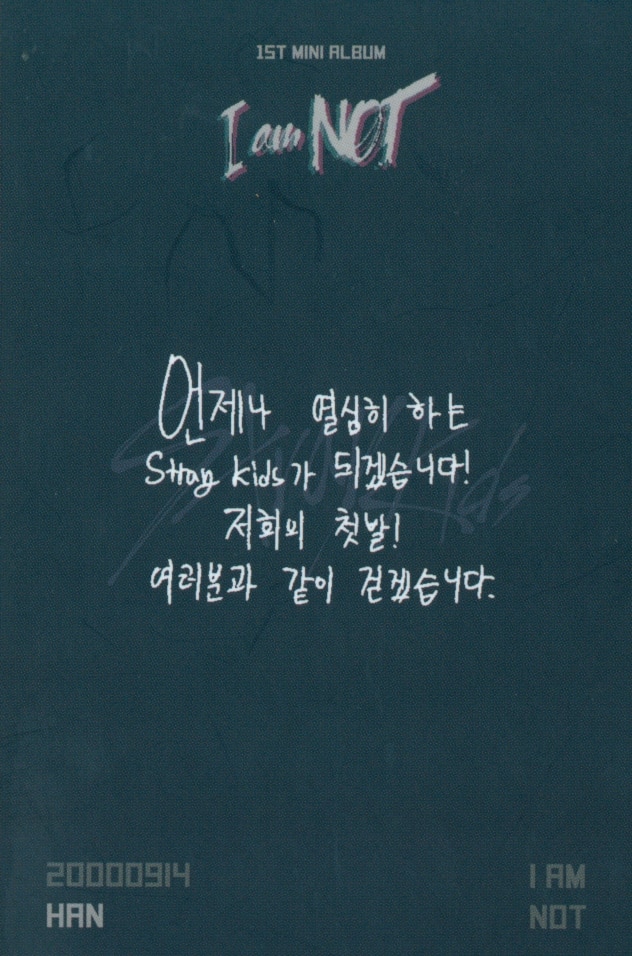 1ST MINI ALBUM
I am NOT
Stray Kids
언제나 열심히 하는
Stray Kids가 되겠습니다!
저희의 첫발!
여러분과 같이 걷겠습니다.
20000914
HAN
I AM
NOT